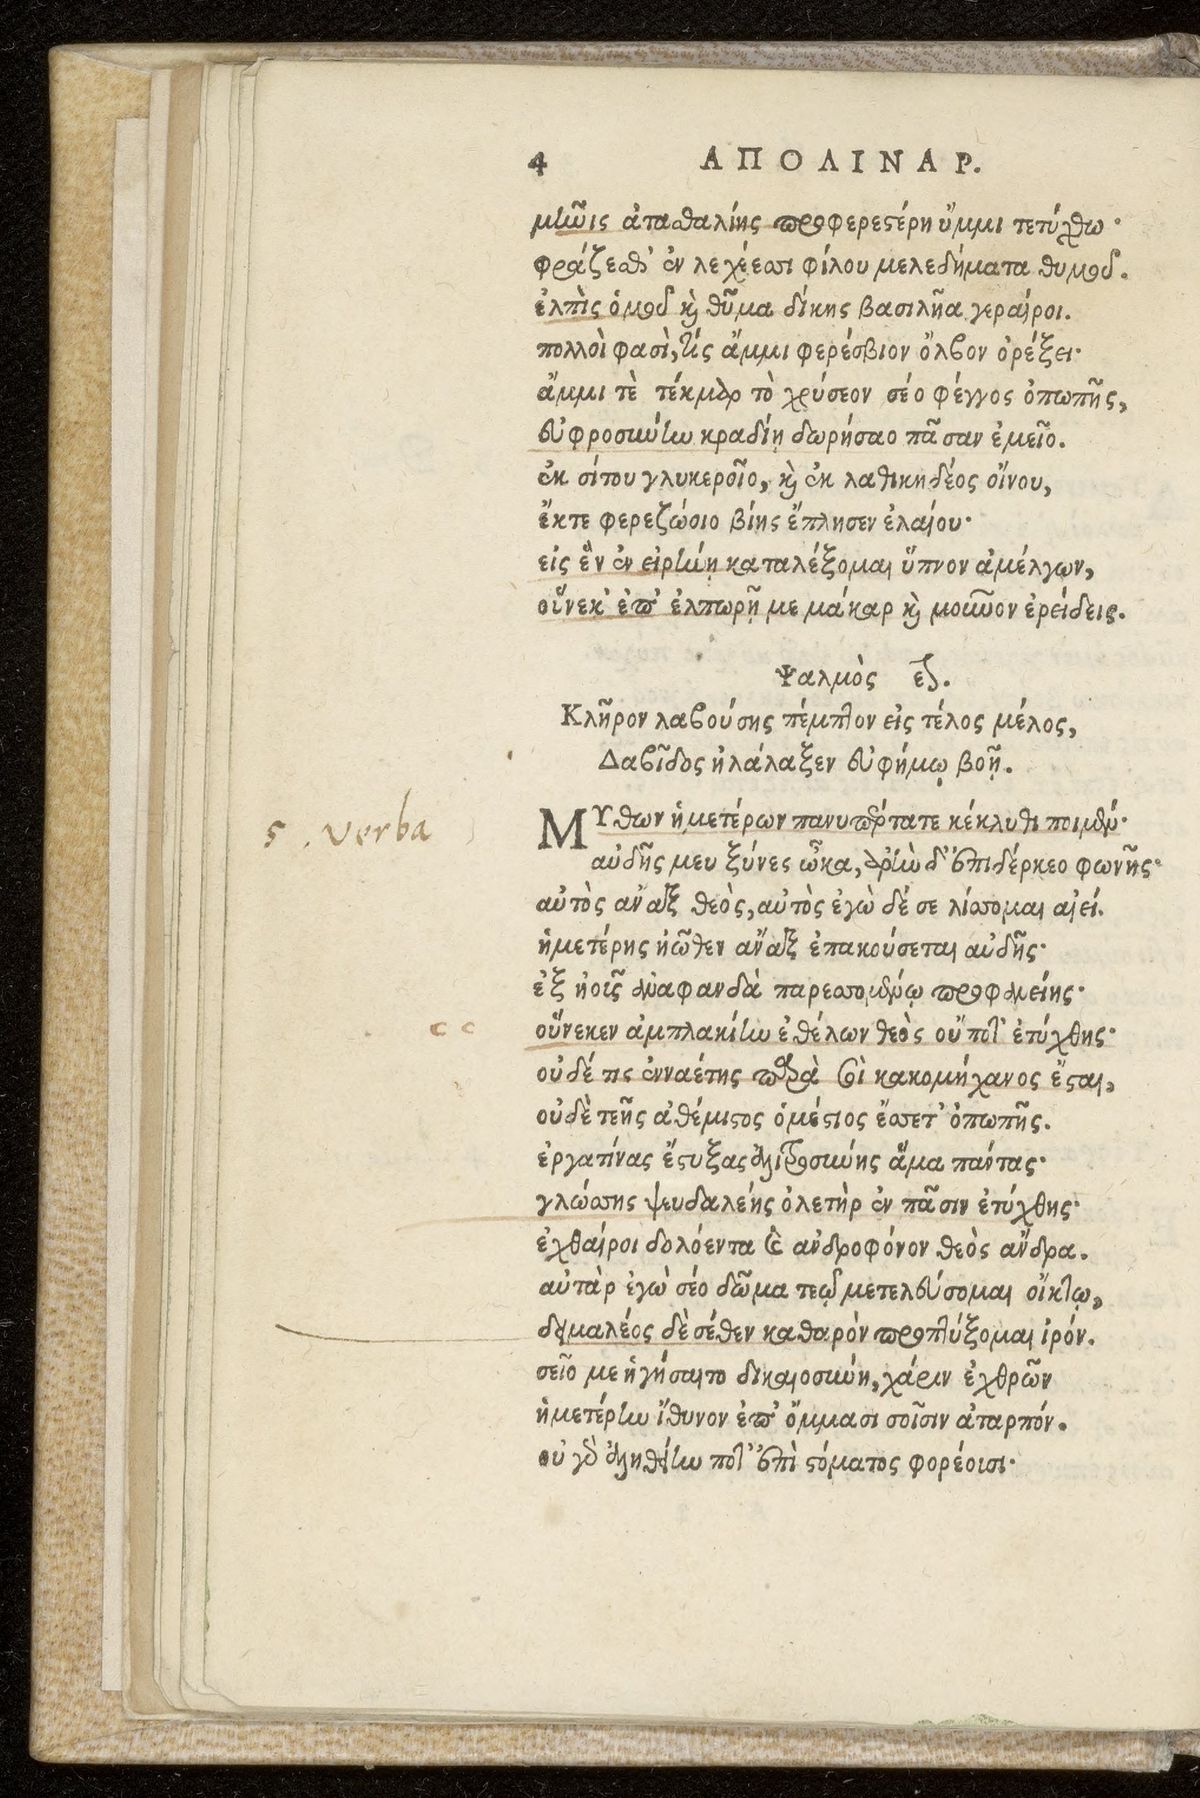 4 ΑΠΟΛΙΝΑΡ.
μῆνις ἀτασθαλίης προφερεστέρη ὔμμι τετύχθω·
φράζεσθ' ἐν λεχέεσσι φίλου μελεδήματα θυμοῦ.
ἐλπὶς ὁμοῦ καὶ θῦμα δίκης βασιλῆα γεραίροι.
πολλοὶ φασὶ, τίς ἄμμι φερέσβιον ὄλβον ὀρέξει·
ἄμμι τὲ τέκμαρ τὸ χρύσεον σέο φέγγος ὀπωπῆς,
εὐφροσύνην κραδίῃ δωρήσαο πᾶσαν ἐμεῖο.
ἐκ σίτου γλυκεροῖο, καὶ ἐκ λαθικηδέος οἴνου,
ἔκτε φερεζώσιο βίης ἔπλησεν ἐλαίου·
εἰς ἓν ἐν εἰρήνῃ καταλέξομαι ὕπνον ἀμέλγων,
οὕνεκ' ἐπ' ἐλπωρῇ με μάκαρ καὶ μοῦνον ἐρείδεις.
Ψαλμὸς ε.
Κλῆρον λαβούσης πέμπτον εἰς τέλος μέλος,
Δαβῖδος ἠλάλαξεν εὐφήμῳ βοῇ.
ΜΥθων ἡμετέρων πανυπέρτατε κέκλυθι ποιμήν·
5. verba
αὐδῆς μευ ξύνες ὦκα, ἀρὴν δ' ἐπιδέρκεο φωνῆς·
αὐτὸς ἄναξ θεὸς, αὐτὸς ἐγὼ δέ σε λίσσομαι αἰεί.
ἡμετέρης ἠῶθεν ἄναξ ἐπακούσεται αὐδῆς·
ἐξ ἠοῖς ἀναφανδὰ παρεσσομένῳ προφανείης·
cc οὕνεκεν ἀμπλακίην ἐθέλων θεὸς οὔποτ' ἐτύχθης·
οὐδέ τις ἐνναέτης παρὰ σοὶ κακομήχανος ἔσται,
οὐδὲ τεῆς ἀθέμιστος ὁμέστιος ἔσσετ' ὀπωπῆς.
ἐργατίνας ἔστυξας ἀλιτροσύνης ἅμα πάντας·
γλώσσης ψευδαλέης ὀλετὴρ ἐν πᾶσιν ἐτύχθης·
ἐχθαίροι δολόεντα καὶ ἀνδροφόνον θεὸς ἄνδρα.
αὐτὰρ ἐγὼ σέο δῶμα τεῷ μετελεύσομαι οἴκτῳ,
δειμαλέος δὲ σέθεν καθαρὸν προσπτύξομαι ἱρόν.
σεῖό με ἡγήσαιτο δικαιοσύνη, χάριν ἐχθρῶν
ἡμετέρην ἴθυνον ἐπ' ὄμμασι σοῖσιν ἀταρπόν.
οὐ γὰρ ἀληθείην ποτ' ἐπὶ στόματος φορέοισι·